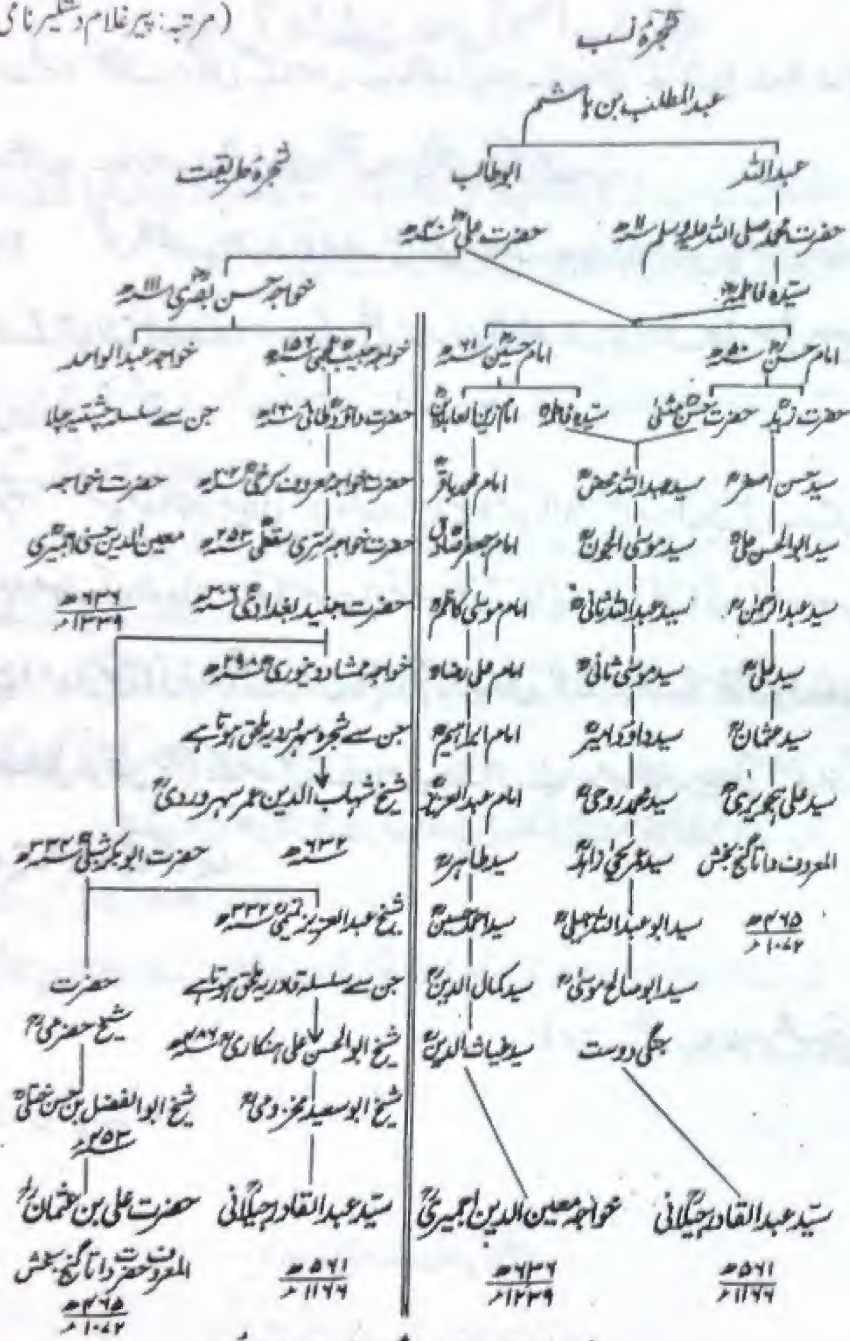 (مرتبہ: پیر غلام دستگیر نامی
شجرۂ نسب
عبدالمطلب بن ہاشم
شجرۂ طریقت
عبداللہ ابوطالب
حضرت محمد صلی اللہ علیہ وسلم ۱۱ھ حضرت علیؓ ۴۰ھ
سیدہ فاطمہؓ خواجہ حسن بصریؒ ۱۱۱ھ
امام حسنؓ ۵۰ھ امام حسینؓ ۶۱ھ خواجہ حبیب عجمیؒ ۱۵۶ھ خواجہ عبدالواحد
حضرت زیدؒ حضرت حسن مثنیٰ سیدہ فاطمہؒ امام زین العابدینؒ حضرت داؤد طائیؒ جن سے سلسلہ چشتیہ چلا
سید حسن اصغرؒ سید عبداللہ محضؒ امام محمد باقرؒ حضرت خواجہ معروف کرخیؒ حضرت خواجہ
سید ابوالحسن علیؒ سید موسیٰ الجونؒ امام جعفر صادقؒ حضرت خواجہ سری سقطیؒ ۲۵۳ھ معین الدین حسنی اجمیریؒ
سید عبدالرحمٰنؒ سید عبداللہ ثانیؒ امام موسیٰ کاظمؒ حضرت جنید بغدادیؒ ۶۳۶ھ
۱۲۳۹ء
سید علیؒ سید موسیٰ ثانیؒ امام علی رضاؒ خواجہ ممشاد دینوریؒ ۲۹۸ھ
سید عثمانؒ سید داؤد امیرؒ امام ابراہیمؒ جن سے شجرہ سہروردیہ ملحق ہوتا ہے
سید علی ہجویریؒ سید محمد روحیؒ امام عبدالعزیزؒ شیخ شہاب الدین عمر سہروردیؒ
المعروف داتا گنج بخش سید یحییٰ زاہدؒ سید طاہرؒ ۶۳۲ھ حضرت ابوبکر شبلیؒ ۳۳۴ھ
۴۶۵ھ سید ابو عبداللہ جبلیؒ سید احمد حسینؒ شیخ عبدالعزیز تمیمیؒ ۳۳۲ھ
۱۰۷۲ء
سید ابو صالح موسیٰؒ سید کمال الدینؒ جن سے سلسلہ قادریہ ملحق ہوتا ہے حضرت
جنگی دوست سید غیاث الدینؒ شیخ ابوالحسن علی ہنکاریؒ ۴۸۶ھ شیخ حضرمیؒ
شیخ ابو سعید مخزومیؒ شیخ ابوالفضل بن حسن ختلیؒ
۴۵۳ھ
سید عبدالقادر جیلانی خواجہ معین الدین اجمیریؒ سید عبدالقادر جیلانی حضرت علی بن عثمانؒ
المعروف حضرت داتا گنج بخش
۵۶۱ھ ۶۳۶ھ ۵۶۱ھ ۴۶۵ھ
۱۱۶۶ء ۱۲۳۹ء ۱۱۶۶ء ۱۰۷۲ء